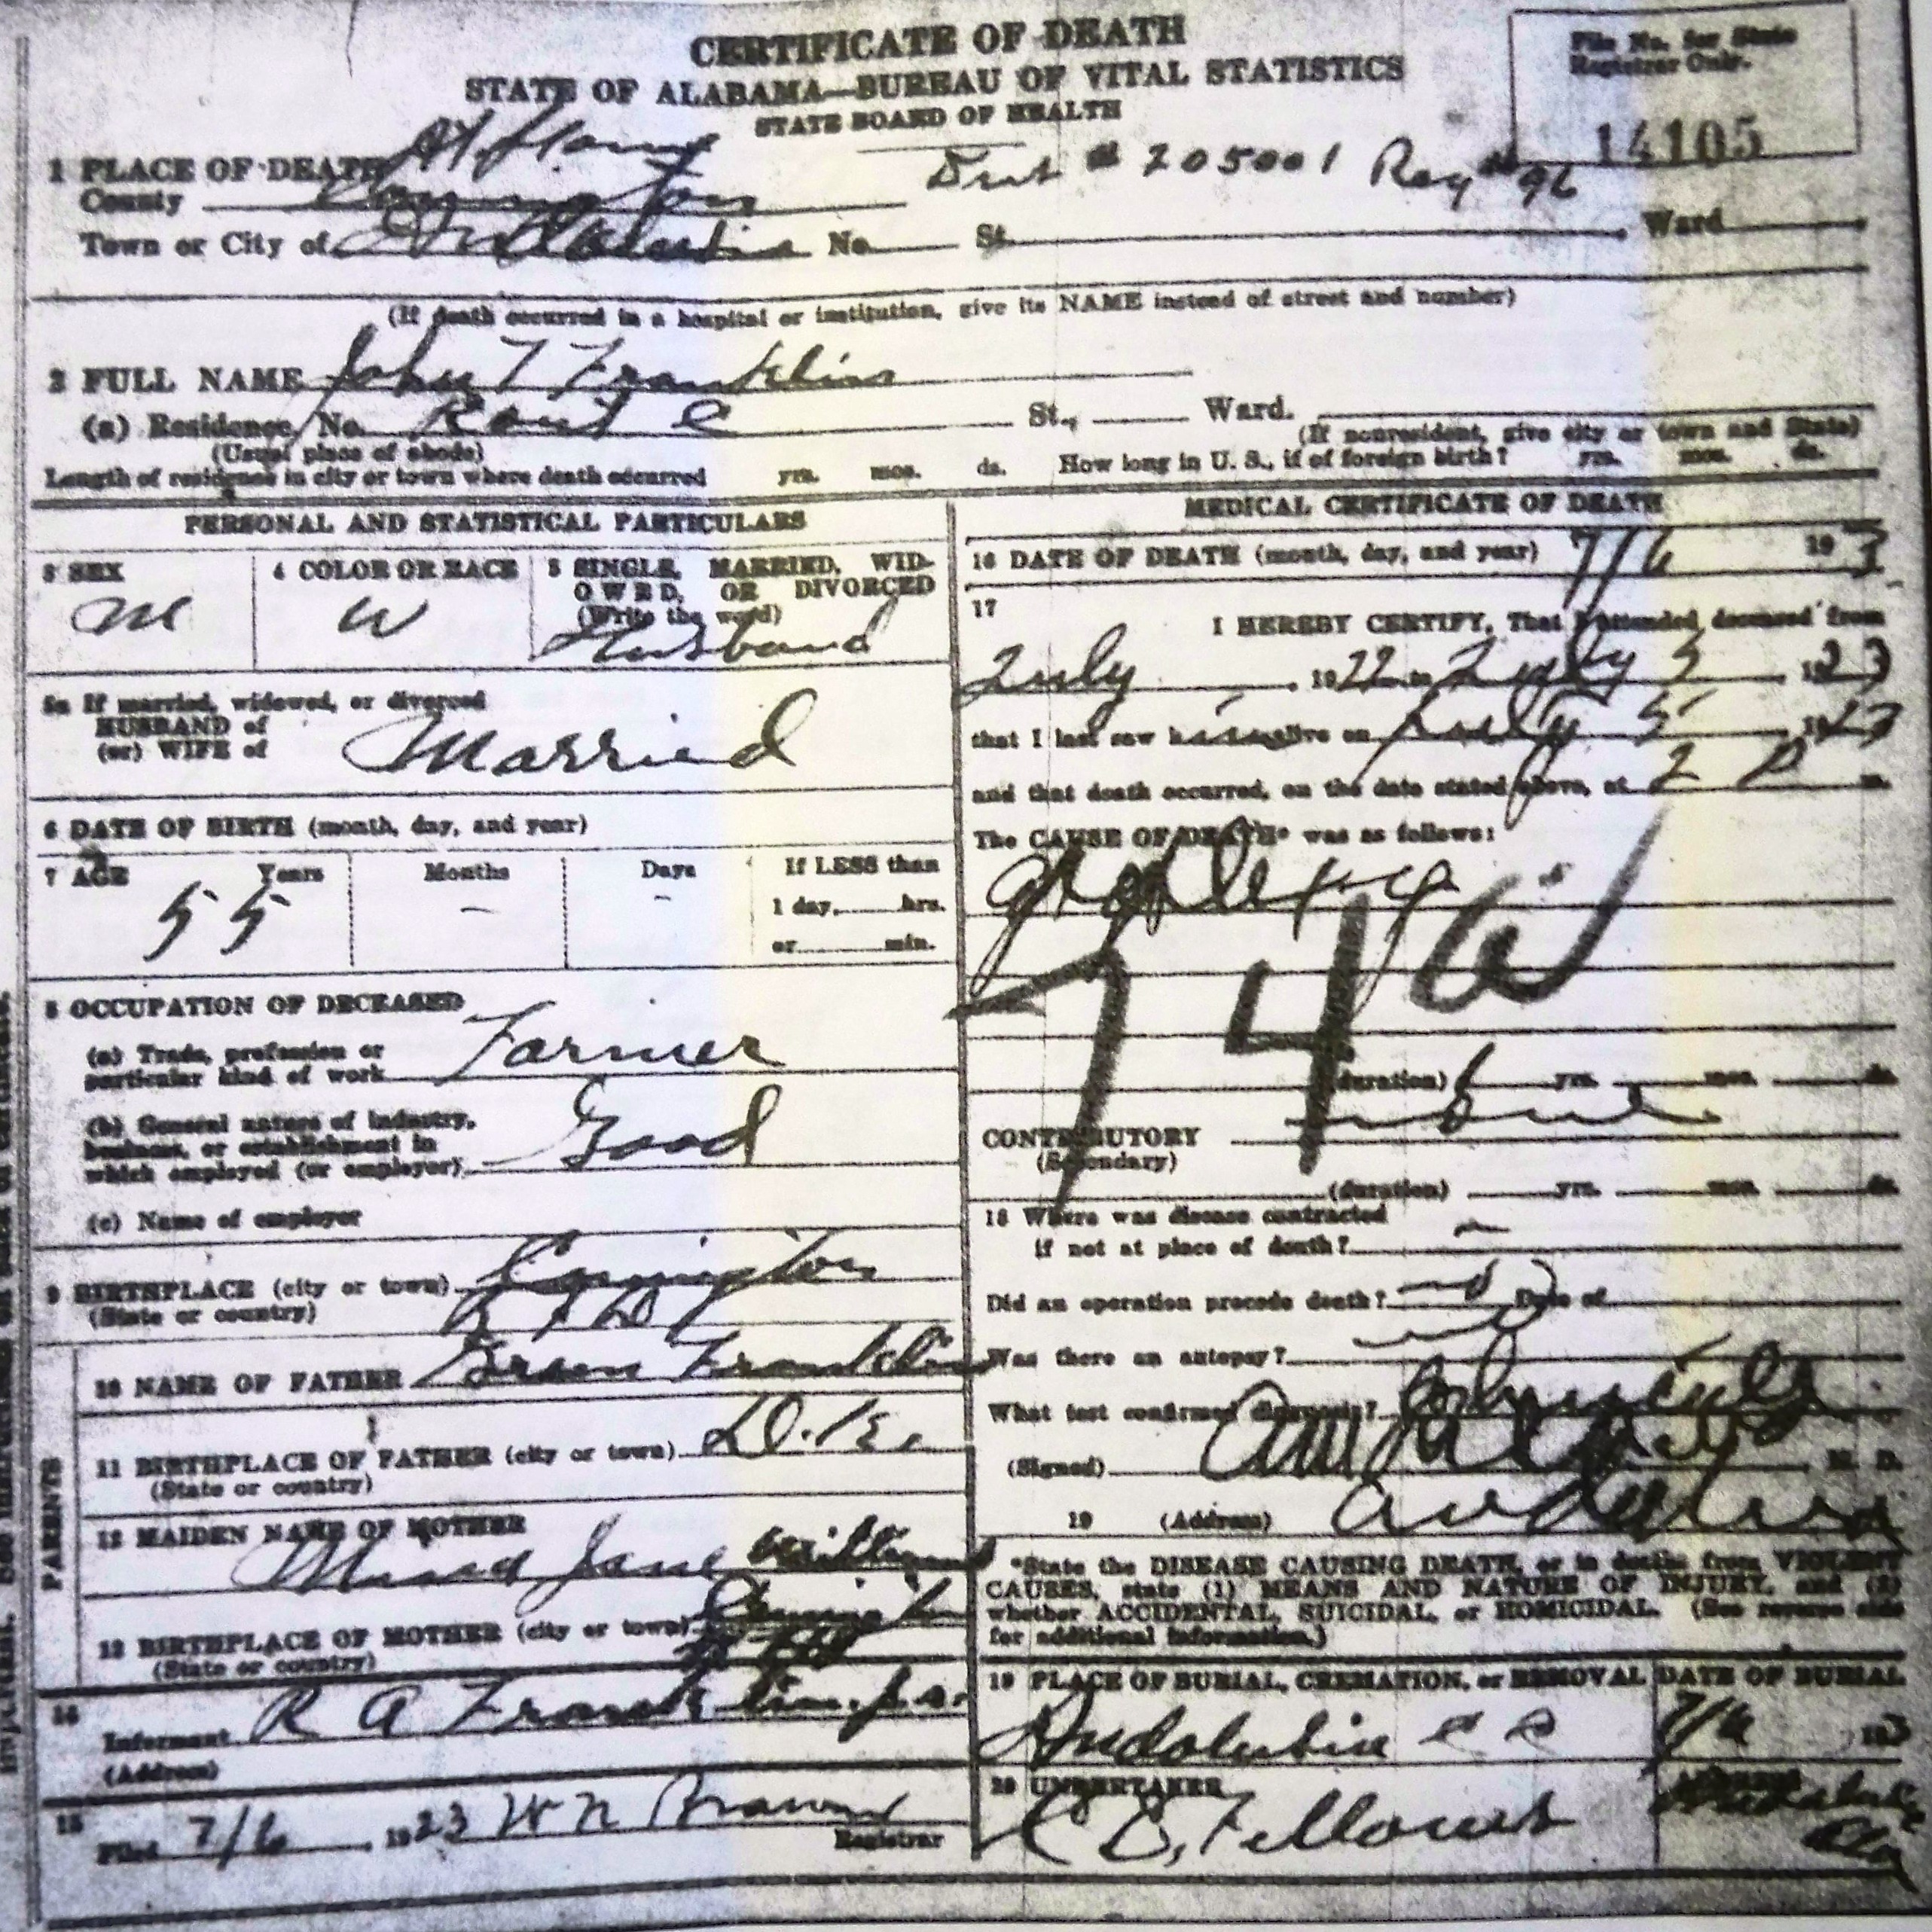 CERTIFICATE OF DEATH
STATE OF ALABAMA—BUREAU OF VITAL STATISTICS
STATE BOARD OF HEALTH
File No. for State
Registrar Only.
14105
At Home
1 PLACE OF DEATH
County Covington
205001 Reg # 96
Town or City of Andalusia No. St. Ward
(If death occurred in a hospital or institution, give its NAME instead of street and number)
2 FULL NAME John T Franklin
(a) Residence, No. Rout e St., Ward.
(Usual place of abode) (If nonresident, give city or town and State)
Length of residence in city or town where death occurred yrs. mos. ds. How long in U. S., if of foreign birth? yrs. mos. ds.
PERSONAL AND STATISTICAL PARTICULARS
3 SEX
M
4 COLOR OR RACE
W
5 SINGLE, MARRIED, WID-
OWED, OR DIVORCED
(Write the word)
Husband
5a If married, widowed, or divorced
HUSBAND of
(or) WIFE of
Married
6 DATE OF BIRTH (month, day, and year)
7 AGE Years Months Days If LESS than
55 - - 1 day, hrs.
or min.
8 OCCUPATION OF DECEASED
(a) Trade, profession or
particular kind of work Farmer
(b) General nature of industry,
business, or establishment in
which employed (or employer) Good
(c) Name of employer
9 BIRTHPLACE (city or town) Covington
(State or country) R F D
PARENTS
10 NAME OF FATHER Green Franklin
11 BIRTHPLACE OF FATHER (city or town)
(State or country)
12 MAIDEN NAME OF MOTHER
Jane
13 BIRTHPLACE OF MOTHER (city or town) Covington
(State or country)
14
Informant R A Franklin
(Address)
15
Filed 7/6, 1923 W N Brawn
Registrar
MEDICAL CERTIFICATE OF DEATH
16 DATE OF DEATH (month, day, and year) 7/6 19 3
17
I HEREBY CERTIFY, That I attended deceased from
July, 1922 to July 5, 1923
that I last saw him alive on July 5, 1923
and that death occurred, on the date stated above, at 2 P m.
The CAUSE OF DEATH* was as follows:
apoplexy
74 a
(duration) yrs. mos. ds.
CONTRIBUTORY none
(Secondary)
(duration) yrs. mos. ds.
18 Where was disease contracted
if not at place of death? -
Did an operation precede death? no Date of
Was there an autopsy? no
What test confirmed diagnosis?
(Signed) M. D.
19 (Address) Andalusia
*State the DISEASE CAUSING DEATH, or in deaths from VIOLENT
CAUSES, state (1) MEANS AND NATURE OF INJURY, and (2)
whether ACCIDENTAL, SUICIDAL, or HOMICIDAL. (See reverse side
for additional information.)
19 PLACE OF BURIAL, CREMATION, or REMOVAL
Andalusia
DATE OF BURIAL
7/6 19 3
20 UNDERTAKER
E, Fellows
ADDRESS
Andalusia
Ala